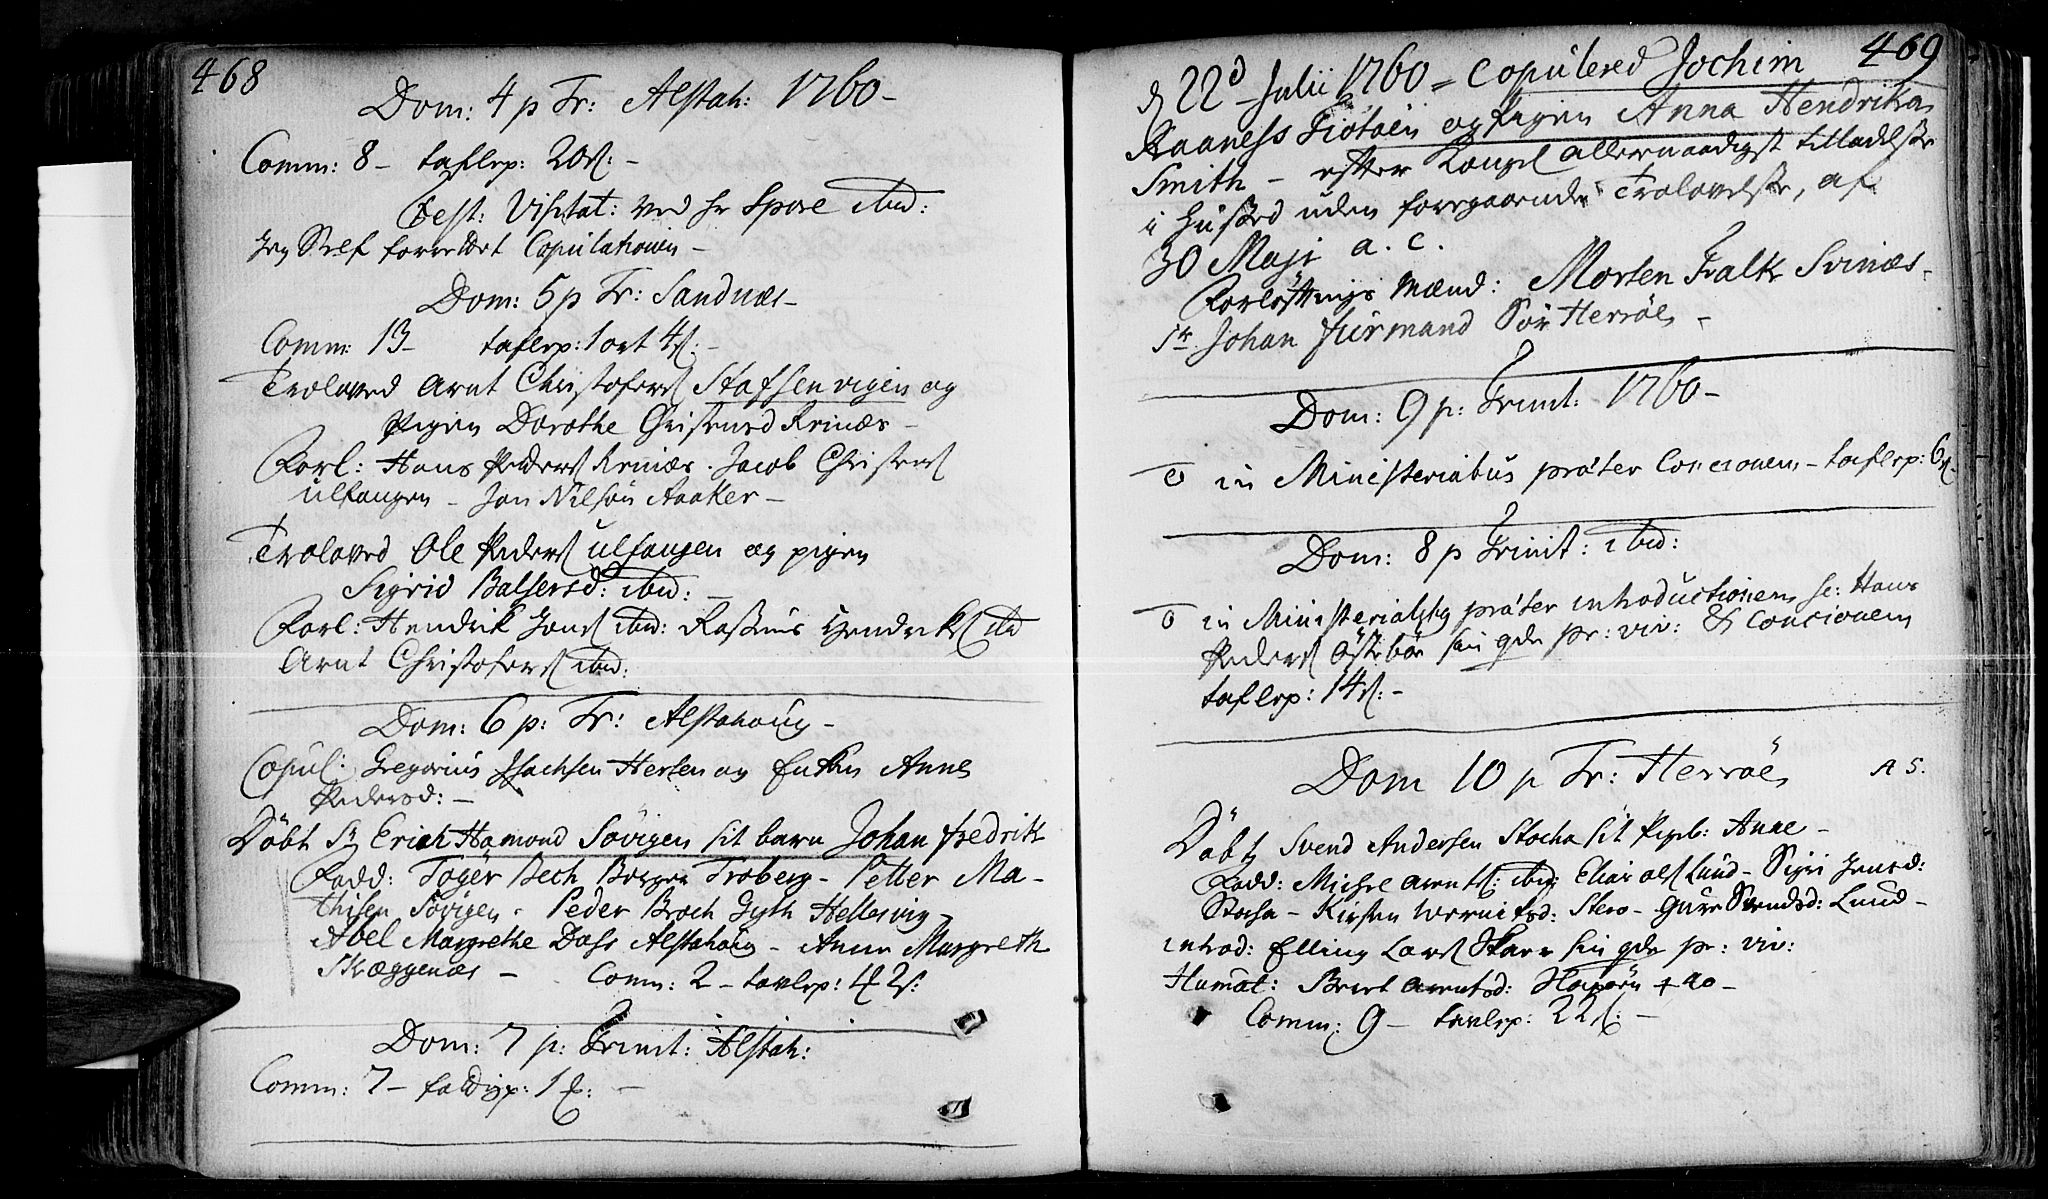 468
Dom: 4 p Tr: Alstah: 1760 -
Comm: 8 - taflrp: 20 ß: -
Test: Visitat: ved Hr Spore ibid:
Jeg Self forrettet Copulationen -
Dom: 5 p Tr: Sandnæs -
Comm: 13 - taflrp: 1 ort 4 ß: -
Troloved Arnt Christofers Stafsenvigen og
Pigen Dorothe Christensd Reinæs -
Forl: Hans Peders Reinæs. Jacob Christens
Ulfangen - Jon Nilsøn Aaker -
Troloved Ole Peders Ulfangen og pigen
Sigrid Balsersd: ibid: -
Forl: Hendrik Jons ibid: Rasmus Hendriks ibd
Arnt Christofers ibid:
Dom: 6 p: Tr: Alstahoug -
Copul: Gregorius Isachsen Hersen og Enken Anne
Pedersd: -
Döbt Sr Erich Hamond Sövigen sit barn Johan Fredrik
Fadd: Töger Bech Borgen Troberg - Petter Ma-
thisen Sövigen - Peder Broch Gyth Hellesvig -
Abel Margrethe Dass Alstahoug - Anne Margreth
Skæggenæs - Comm: 2 - tavlrp: 42 ß:
Dom: 7 p: Trinit: Alstah:
Comm: 7 - : 1 : -
469
d 22d Julii 1760 = Copulered Jochim
Kaaness Tiötöen og Pigen Anna Hendrika
Smith - efter Kongel allernaadigst tilladelse
i Huset uden foregaaende Trolovelse, af
30 Maji a. c.
Forløftnings Mænd: Morten Falk Svinæs -
Sr. Johan Furmand Sör Herröe -
Dom: 9 p: Trinit: 1760 -
O in Ministerialibus præter Concionem - taflrp: 6 ß -
Dom: 8 p Trinit: ibid:
O in Ministerialibg præter introductionem se: Hans
Peders Östebö sin qde pr: viv: & Concionem
taflrp: 14 ß: -
Dom 10 p Tr: Herröe A 5.
Döbt Svend Andersen Stocha sit Pigeb: Anne -
Fadd: Michel Arents: ibid: Elias Ols Lund - Sigri Jensd:
Stocha - Kirsten Wernitsd: Stero - Gure Svendsd: Lund -
introd: Elling Lars Skare sin qde pr: viv:
Humat: Berit Arentsd: +
Comm: 9 - tavlrp: 22 ß: -